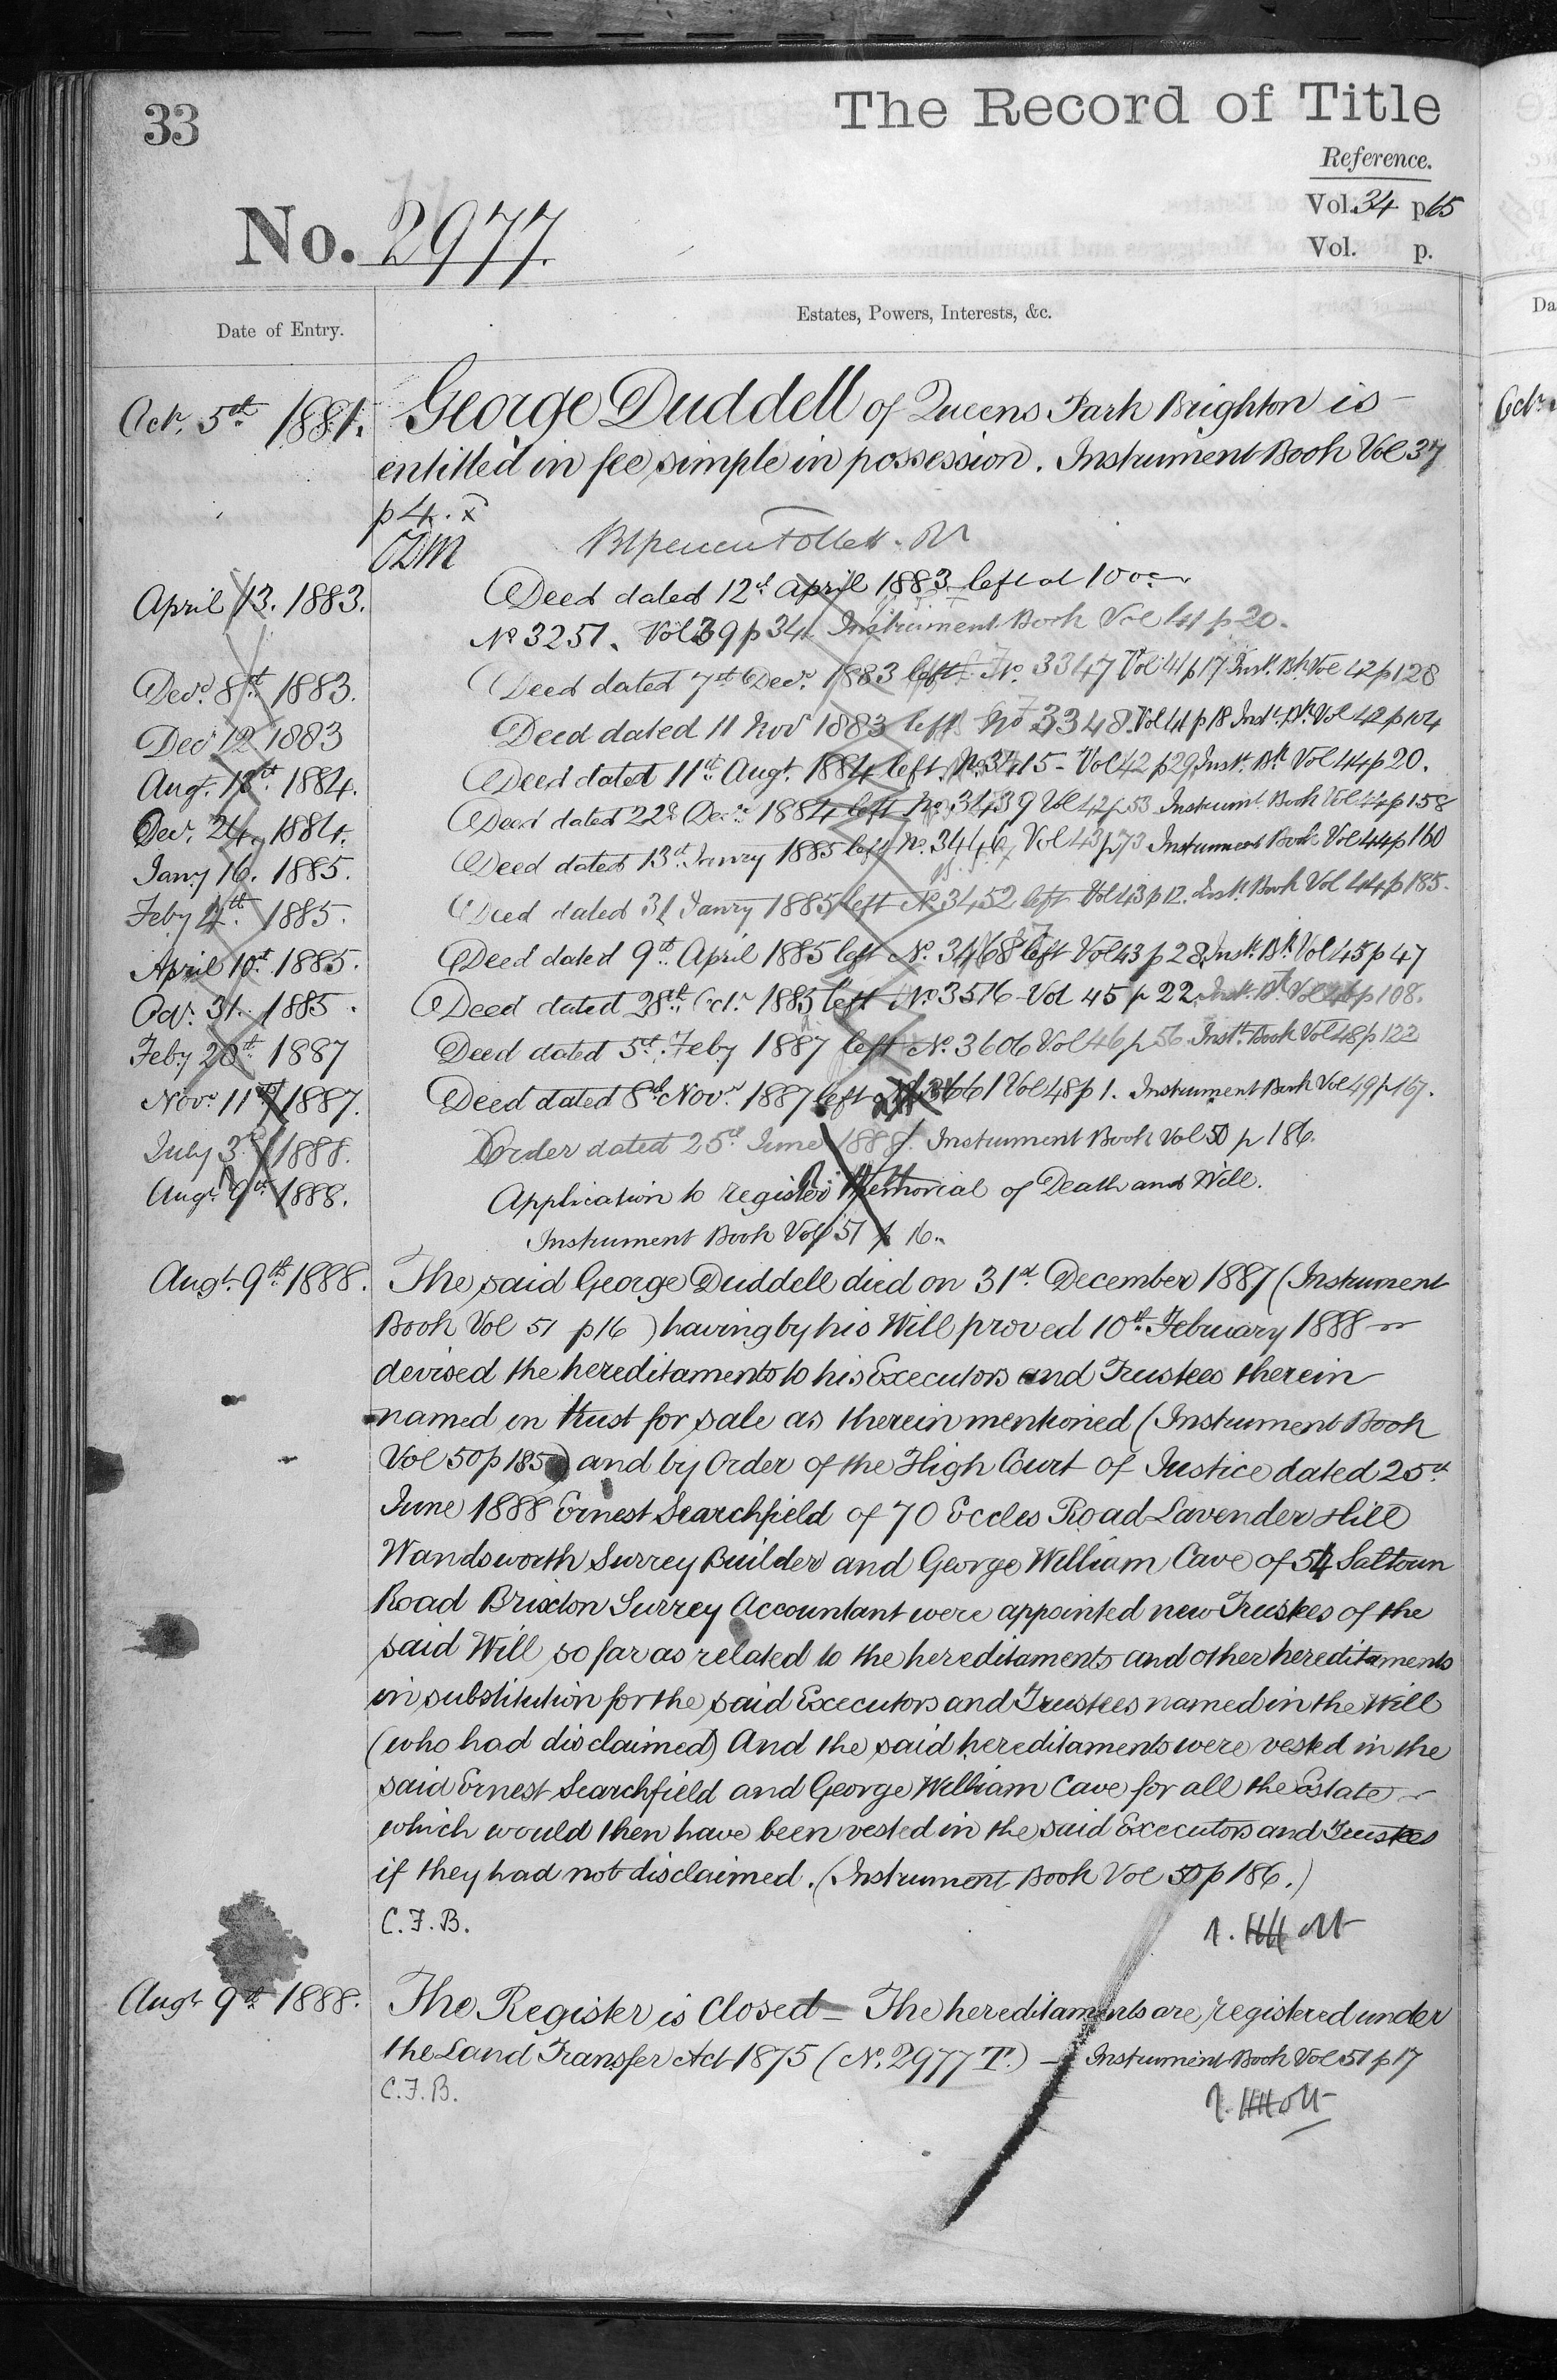 33
The Record of Title
Reference.
Vol. 34 p 65
No. 2977.
Vol. p.
Date of Entry.
Estates, Powers, Interests, &c.
Octr. 5th 1881. George Duddell of Queens Park Brighton is
entitled in fee simple in possession. Instrument Book Vol 37
p 4. x
April 13. 1883. Deed dated 12th April 1883 left at
No 3251. Vol 39 p 34. Instrument Book Vol 41 p 20.
Decr. 8th 1883. Deed dated 7th Decr. 1883 left No. 3347 Vol 41 p 17 Inst. Bk. Vol 42 p 128
Decr 12 1883 Deed dated 11 Novr 1883 left No 3348. Vol 41 p 18 Inst. Bk. Vol 42 p 104
Augt. 13th 1884. Deed dated 11th Augt. 1884 left. No. 3415 - Vol 42 p 29, Inst. Bk Vol 44 p 20.
Decr. 24. 1884. Deed dated 22d Decr. 1884 left No. 3439 Vol 42 p 53 Instrumt. Book Vol 44 p 158
Jany 16. 1885. Deed dated 13th Janry 1885 left No. 3446 Vol 43 p 73 Instrument Book Vol 44 p 160
Feby 4th 1885. Deed dated 31 Janry 1885 left No 3452 left Vol 43 p 12. Inst. Book Vol 44 p 185.
April 10th 1885. Deed dated 9th April 1885 left No. 3468 left Vol 43 p 28, Inst. Bk. Vol 45 p 47
Octr. 31. 1885. Deed dated 28th Octr. 1885 left No 3516 Vol 45 p 22, Inst. Bk. Vol 46 p 108.
Feby 28th 1887 Deed dated 5th Feby 1887 left No. 3606 Vol 46 p 56 Inst. Book Vol 48 p 122
Novr. 11th 1887. Deed dated 8th Novr. 1887 left 3661 Vol 48 p 1. Instrument Book Vol 49 p 167.
July 3d 1888. Order dated 25th June 1888. Instrument Book Vol 50 p 186.
Augt. 9th 1888. Application to register Memorial of Death and Will.
Instrument Book Vol 51 p 16.
Augt. 9th 1888. The said George Duddell died on 31st December 1887 (Instrument
Book Vol 51 p 16) having by his Will proved 10th February 1888
devised the hereditaments to his Executors and Trustees therein
named in trust for sale as therein mentioned (Instrument Book
Vol 50 p 185) and by Order of the High Court of Justice dated 25th
June 1888 Ernest Searchfield of 70 Eccles Road Lavender Hill
Wandsworth Surrey Builder and George William Cave of 54 Saltoun
Road Brixton Surrey Accountant were appointed new Trustees of the
said Will so far as related to the hereditaments and other hereditaments
in substitution for the said Executors and Trustees named in the Will
(who had disclaimed) And the said hereditaments were vested in the
said Ernest Searchfield and George William Cave for all the Estate
which would then have been vested in the said Executors and Trustees
if they had not disclaimed. (Instrument Book Vol 50 p 186.)
C.F.B.
Augt 9th 1888. The Register is Closed - The hereditaments are registered under
the Land Transfer Act 1875 (No. 2977 T.) - Instrument Book Vol 51 p 17
C.F.B.